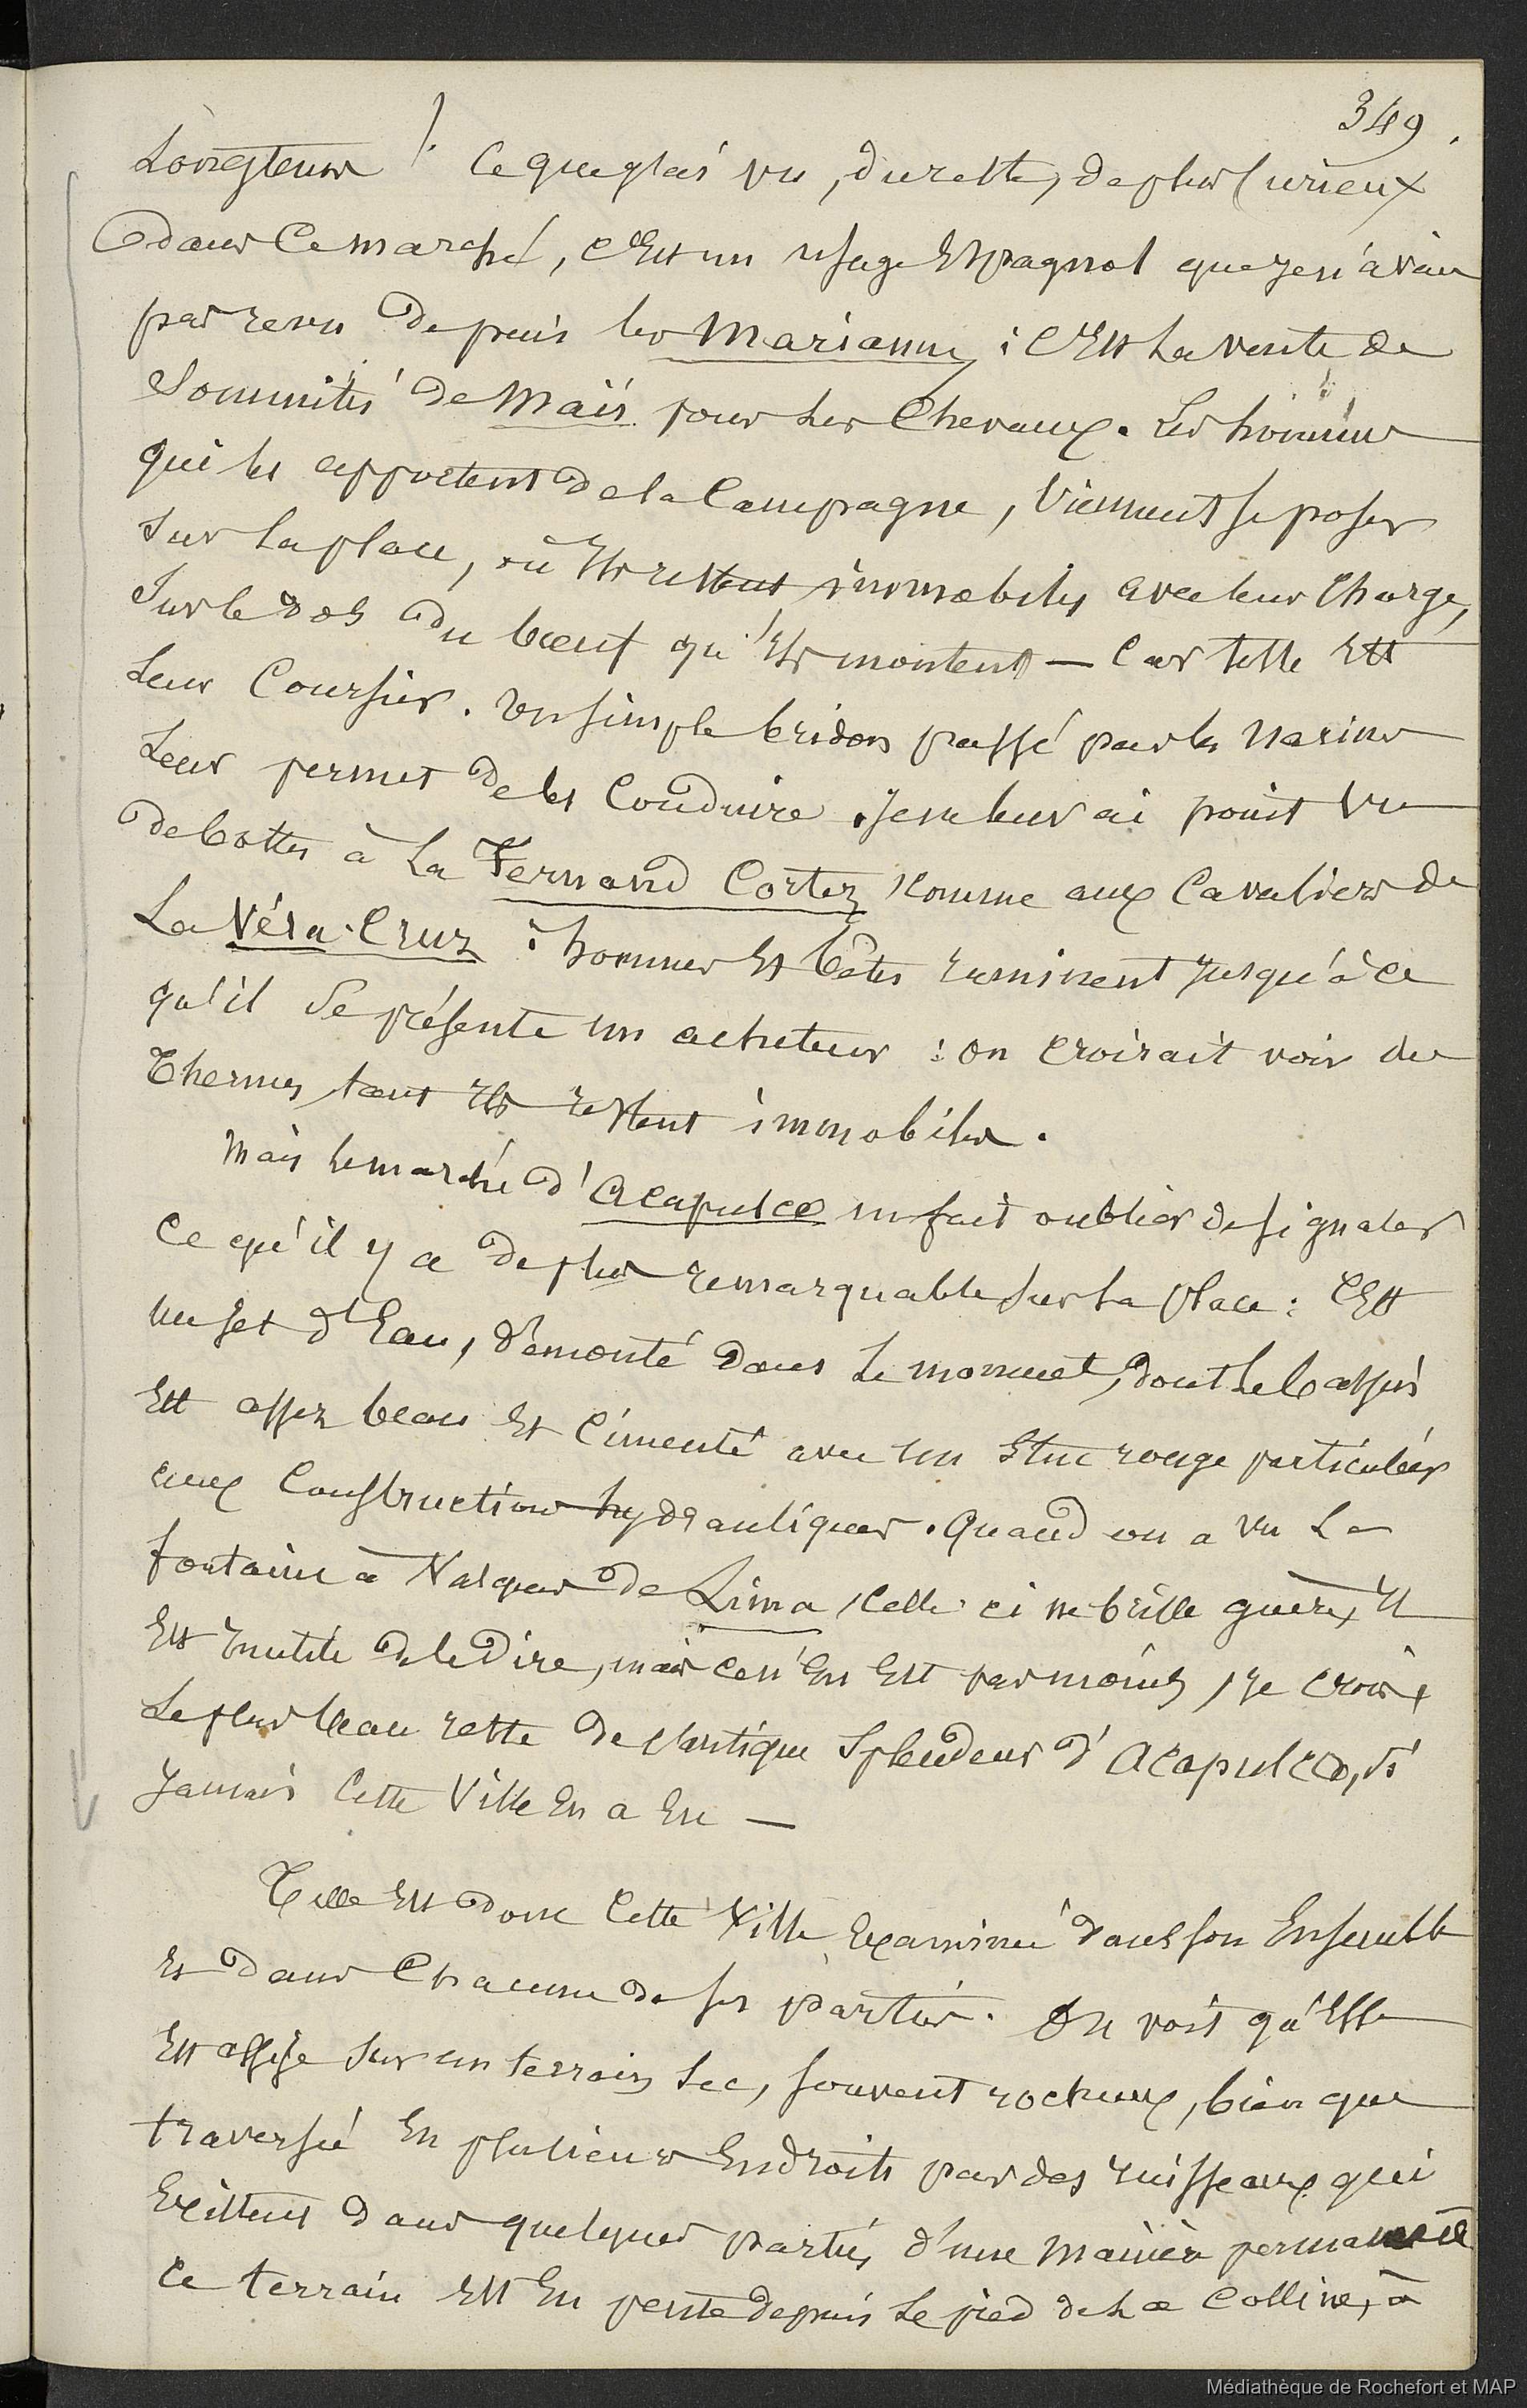 349.
Longtems ! Ce que j'ai vu, du reste, de plus Curieux
dans Ce marché, C'Est un usage Espagnol que je n'avais
pas revu depuis les Mariannes ; C'Est la vente de
Sommités de Maïs pour les Chevaux. Les hommes
qui les apportent de la Campagne, Viennent se poser
Sur la place, où Ils restent immobiles avec leur Charge,
Sur le dos du bœuf qu'Ils montent — Car telle Est
Leur Coursier. Un simple bridon passé par les Narines
Leur permet de les Conduire. Je ne leur ai point Vu
de bottes à La Fernand Cortez, Comme aux Cavaliers de
La Véra-Cruz : hommes Et bêtes ruminent jusqu'à ce
qu'il Se présente un acheteur : on Croirait voir des
Thermes, tant Ils restent immobiles.
Mais le marché d'Acapulco me fait oublier de signaler
Ce qu'il y a de plus remarquable Sur La place : C'Est
un jet d'Eau, démonté dans le moment, dont Le bassin
Est assez beau Et Cimenté avec un Stuc rouge particulier
aux Constructions hydrauliques. Quand on a Vu La
fontaine à Vasques de Lima, Celle-ci ne brille guère, Il
Est Inutile de le Dire, mais Ce n'En Est pas moins, je Crois,
Le plus beau reste de l'antique Splendeur d'Acapulco, si
jamais Cette Ville En a Eu —
Telle Est donc Cette Ville Examinée dans son Ensemble
Et dans Chacune de ses parties. On voit qu'Elle
Est assise Sur un terrain Sec, souvent rocheux, bien que
traversé En plusieurs Endroits par des ruisseaux qui
Existent dans quelques parties d'une Manière permanente
Ce terrain Est En pente depuis Le pied de La Colline, à
Médiathèque de Rochefort et MAP